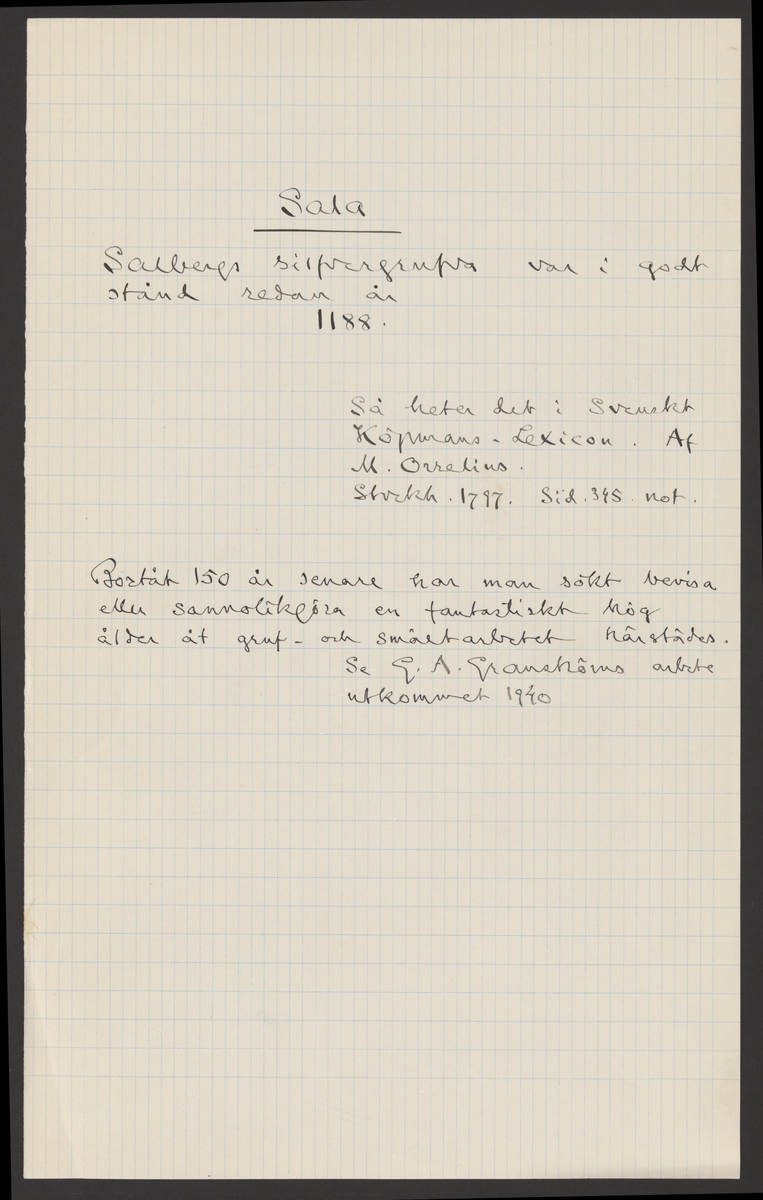 Sala
Salbergs silfvergrufva var i godt
stånd redan år
1188.
Så heter det i Svenskt
Köpmans-Lexicon. Af
M. Orrelius.
Stockh. 1797. Sid. 345. not.
Bortåt 150 år senare har man sökt bevisa
eller sannolikgöra en fantastiskt hög
ålder åt gruf- och smältarbetet härstädes.
Se G. A. Granströms arbete
utkommet 1940